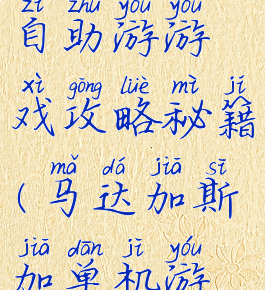 zì zhù yóu yóu
自助游游
xì gōng lüè mì jí
戏攻略秘籍
mǎ dá jiā sī
(马达加斯
jiā dān jī yóu
加单机游